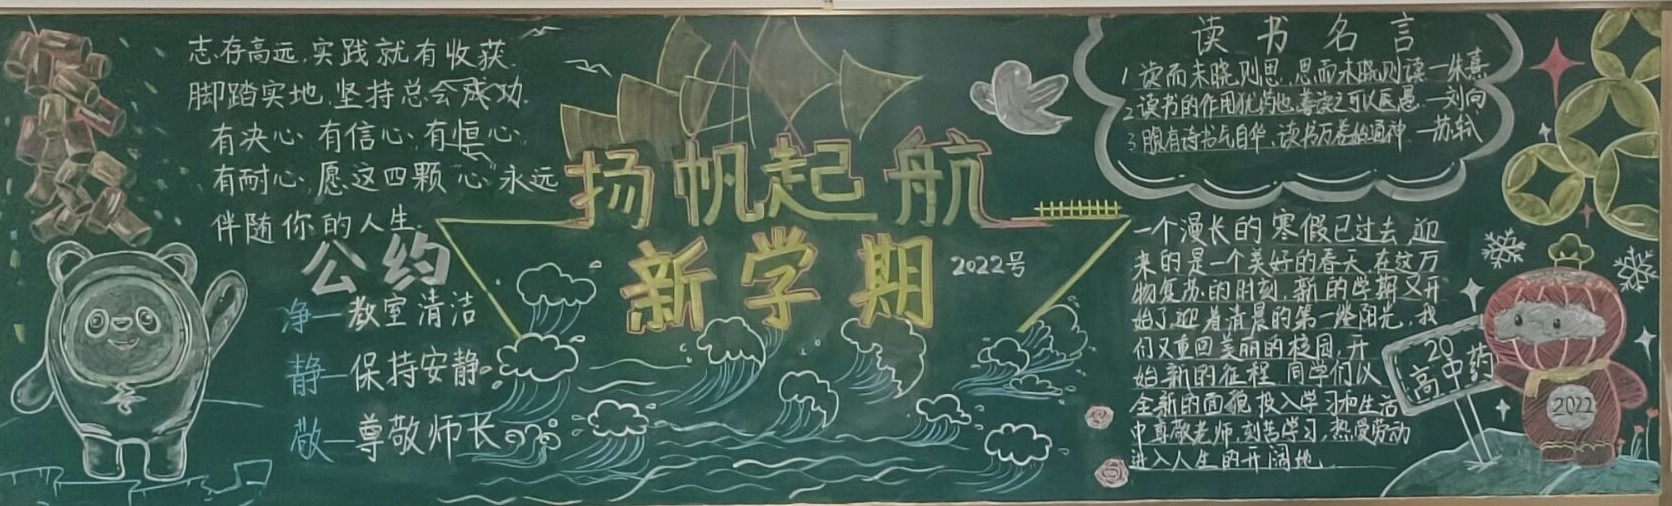 志存高远,实践就有收获.
脚踏实地,坚持总会成功.
有决心,有信心,有恒心,
有耐心,愿这四颗"心"永远
伴随你的人生.
公约
净—教室清洁
静—保持安静
敬—尊敬师长
扬帆起航
新学期
2022号
读书名言
1.读而未晓则思,思而未晓则读—朱熹
2.读书的作用犹药也,善读之可以医愚.—刘向
3.腹有诗书气自华,读书万卷始通神—苏轼
一个漫长的寒假已过去,迎
来的是一个美好的春天,在这万
物复苏的时刻,新的学期又开
始了,迎着清晨的第一丝阳光,我
们又重回美丽的校园,开
始新的征程,同学们以
全新的面貌投入学习和生活
中尊敬老师,刻苦学习,热爱劳动
进入人生的开阔地.
20
高中药
2022